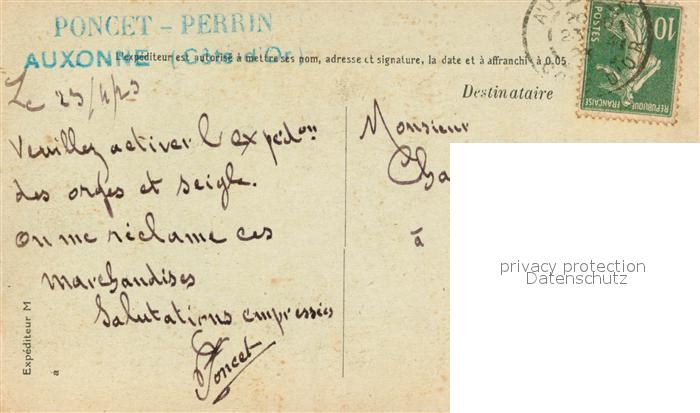 PONCET - PERRIN
AUXONNE (Côte d'Or)
L'expéditeur est autorisé à mettre ses nom, adresse et signature, la date et à affranchir à 0.05
Le 23/4/23
Veuillez activer l'expéd^on
des orges et seigle.
on me réclame ces
marchandises
Salutations empressées
Poncet
Expéditeur M
à
Destinataire
Monsieur
Cha
à
10
POSTES
REPUBLIQUE FRANÇAISE
privacy protection
Datenschutz